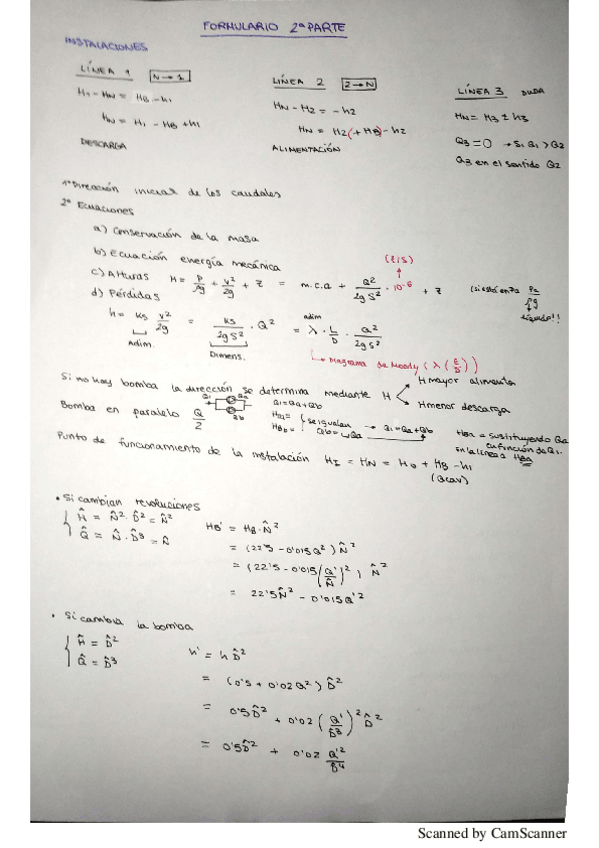 FORMULARIO 2ª PARTE
INSTALACIONES
LÍNEA 1 N→1
H1 - HN = HB - h1
HN = H1 - HB + h1
DESCARGA
LÍNEA 2 2→N
HN - H2 = - h2
HN = H2 (+ HB) - h2
ALIMENTACIÓN
LÍNEA 3 DUDA
HN = H3 ± h3
Q3 = 0 → Si Q1 > Q2
Q3 en el sentido Q2
1º Dirección inicial de los caudales
2º Ecuaciones
a) Conservación de la masa
b) Ecuación energía mecánica
c) Alturas H = P/ρg + v²/2g + z = m.c.a + Q²/2gS² · 10⁻⁶ + z
(l/s)
(si está en Pa Pa/ρg
líquido!!
d) Pérdidas
h = ks v²/2g = ks/2gS² · Q² = λ · L/D · Q²/2gS²
Adim
Dimens.
adim
↳ Diagrama de Moody (λ (ε/D))
Si no hay bomba la dirección se determina mediante H
H mayor alimenta
H menor descarga
Bomba en paralelo Q/2
Q1 Qa Qb
Q1 = Qa + Qb
HBa = HBb = se igualan
Qb = Qa → Q1 = Qa + Qb
HBa = sustituyendo Qa
en función de Q1.
en la línea HBa
Punto de funcionamiento de la instalación HI = HN = H0 + HB - h1
• Si cambian revoluciones
Ĥ = N̂² · D̂² = N̂²
Q̂ = N̂ · D̂³ = N̂
HB' = HB · N̂²
= (22'5 - 0'015Q²) N̂²
= (22'5 - 0'015 (Q'/N̂)²) N̂²
= 22'5N̂² - 0'015Q'²
• Si cambia la bomba
Ĥ = D̂²
Q̂ = D̂³
h' = h D̂²
= (0'5 + 0'02Q²) D̂²
= 0'5D̂² + 0'02 (Q'/D̂³)² D̂²
= 0'5D̂² + 0'02 Q'²/D̂⁴
Scanned by CamScanner